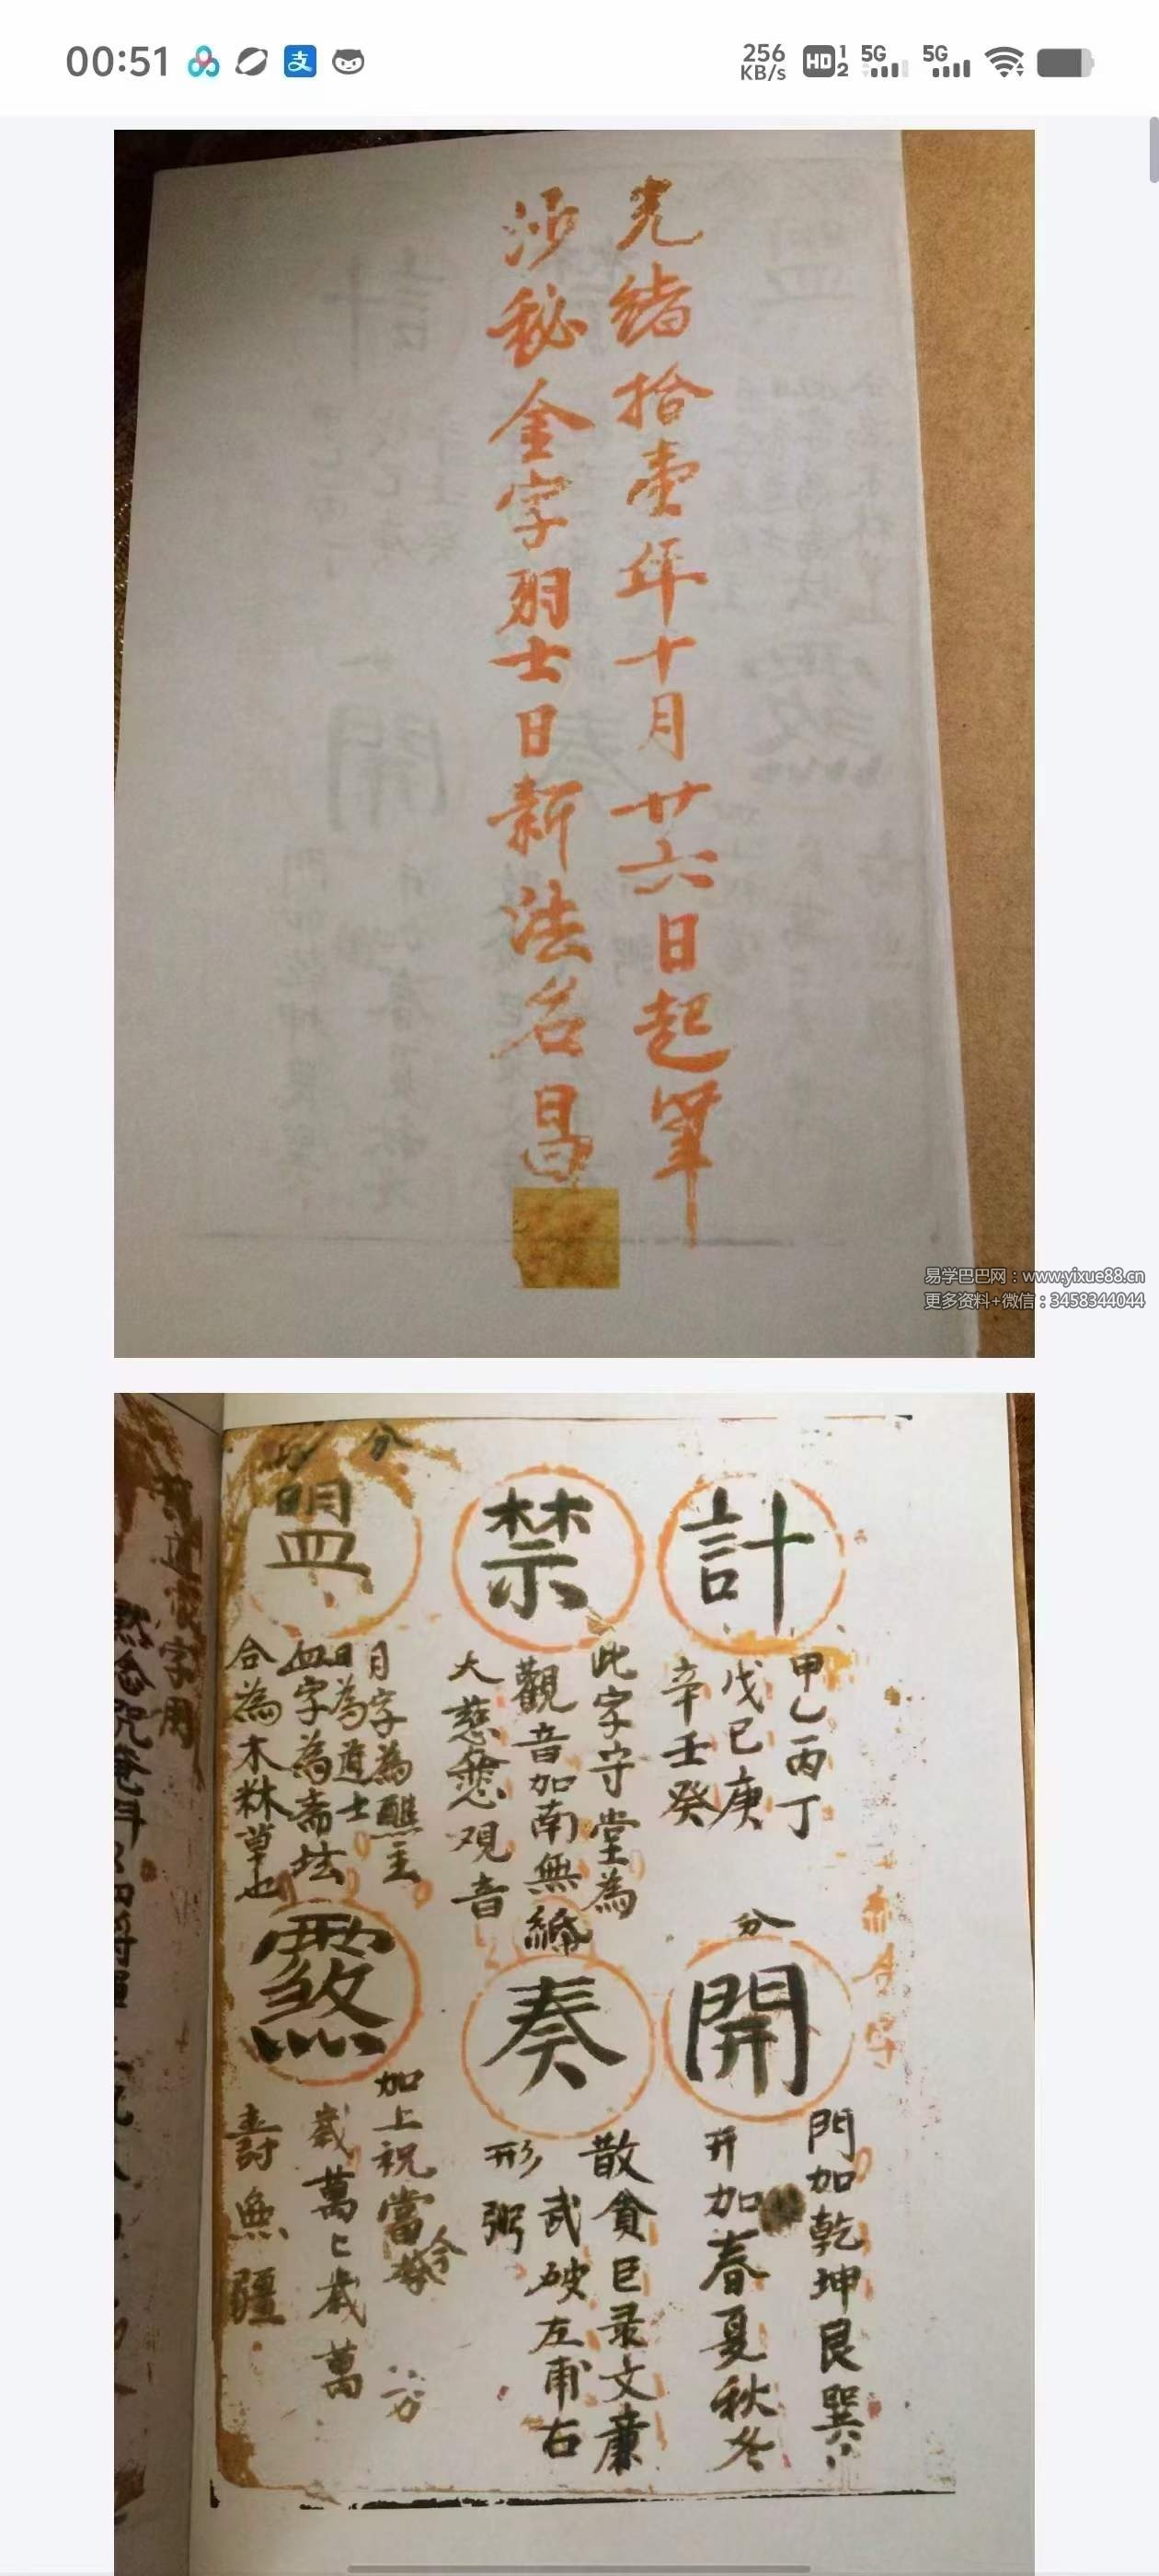 00:51
256 KB/s
HD 1 2
5G
5G
支
光緒拾壹年十月廿六日起筆
秘金字羽士日新法名昌
易学巴巴网：www.yixue88.cn
更多资料+微信：3458344044
計
甲乙丙丁
戊己庚
辛壬癸
禁
此字守堂為
觀音加南無
大慈悲观音
分
盟
月字為醮主
日為道士
血字為斋坛
合為木林草也
分
開
門加乾坤艮巽
开加春夏秋冬
奏
散貪巨录文廉
武破左甫右
形粥
煞
加上祝當
歲萬歲萬
壽無疆
字用